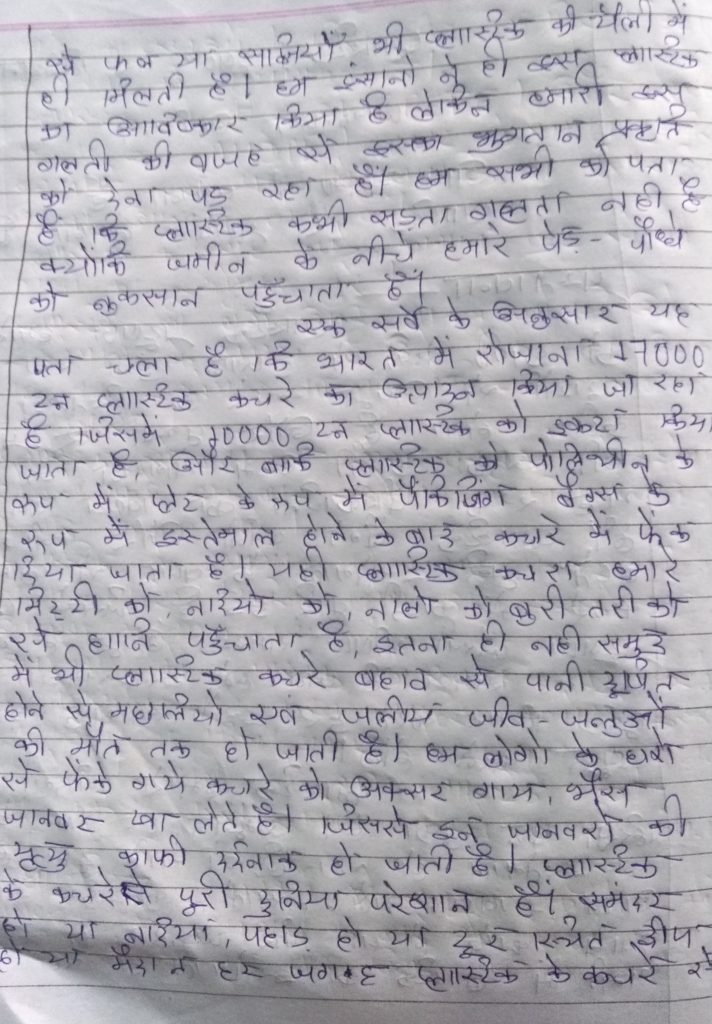 से फल या सब्जियाँ भी प्लास्टिक की थैली में
ही मिलती है। हम इंसानो ने ही इस प्लास्टिक
का आविष्कार किया है लेकिन हमारी इस
गलती की वजह से इसका भुगतान प्रकृति
को देना पड़ रहा है। हम सभी को पता
है कि प्लास्टिक कभी सड़ता गलता नही है
क्योंकि जमीन के नीचे हमारे पेड़ - पौधे
को नुकसान पहुँचाता है।
एक सर्वे के अनुसार यह
पता चला है कि भारत में रोजाना 17000
टन प्लास्टिक कचरे का उत्पादन किया जा रहा
है जिसमें 10000 टन प्लास्टिक को इकटा किया
जाता है, और बाकि प्लास्टिक को पोलिथीन के
रूप में प्लेट के रूप में पैकिजिंग बैग्स के
रूप में इस्तेमाल होने के बाद कचरे में फेंक
दिया जाता है। यही प्लास्टिक कचरा हमारे
मिट्टी को नदियो को, नालो को बुरी तरीको
से हानि पहुँचाता है, इतना ही नही समुद्र
में भी प्लास्टिक कचरे बहाव से पानी दूषित
होने से, मछलियो एवं जलीय जीव - जन्तुओ
की मौत तक हो जाती है। हम लोगो के घरो
से फेंके गये कचरे को अक्सर गाय, भैंस
जानवर खा लेते है। जिससे इन जानवरो की
मृत्यु काफी दर्दनाक हो जाती है। प्लास्टिक
के कचरे से पूरी दुनिया परेशान है। समंदर
हो या नदियां, पहाड़ हो या दूर स्थित द्वीप
हो या मैदान हर जगह प्लास्टिक के कचरे से